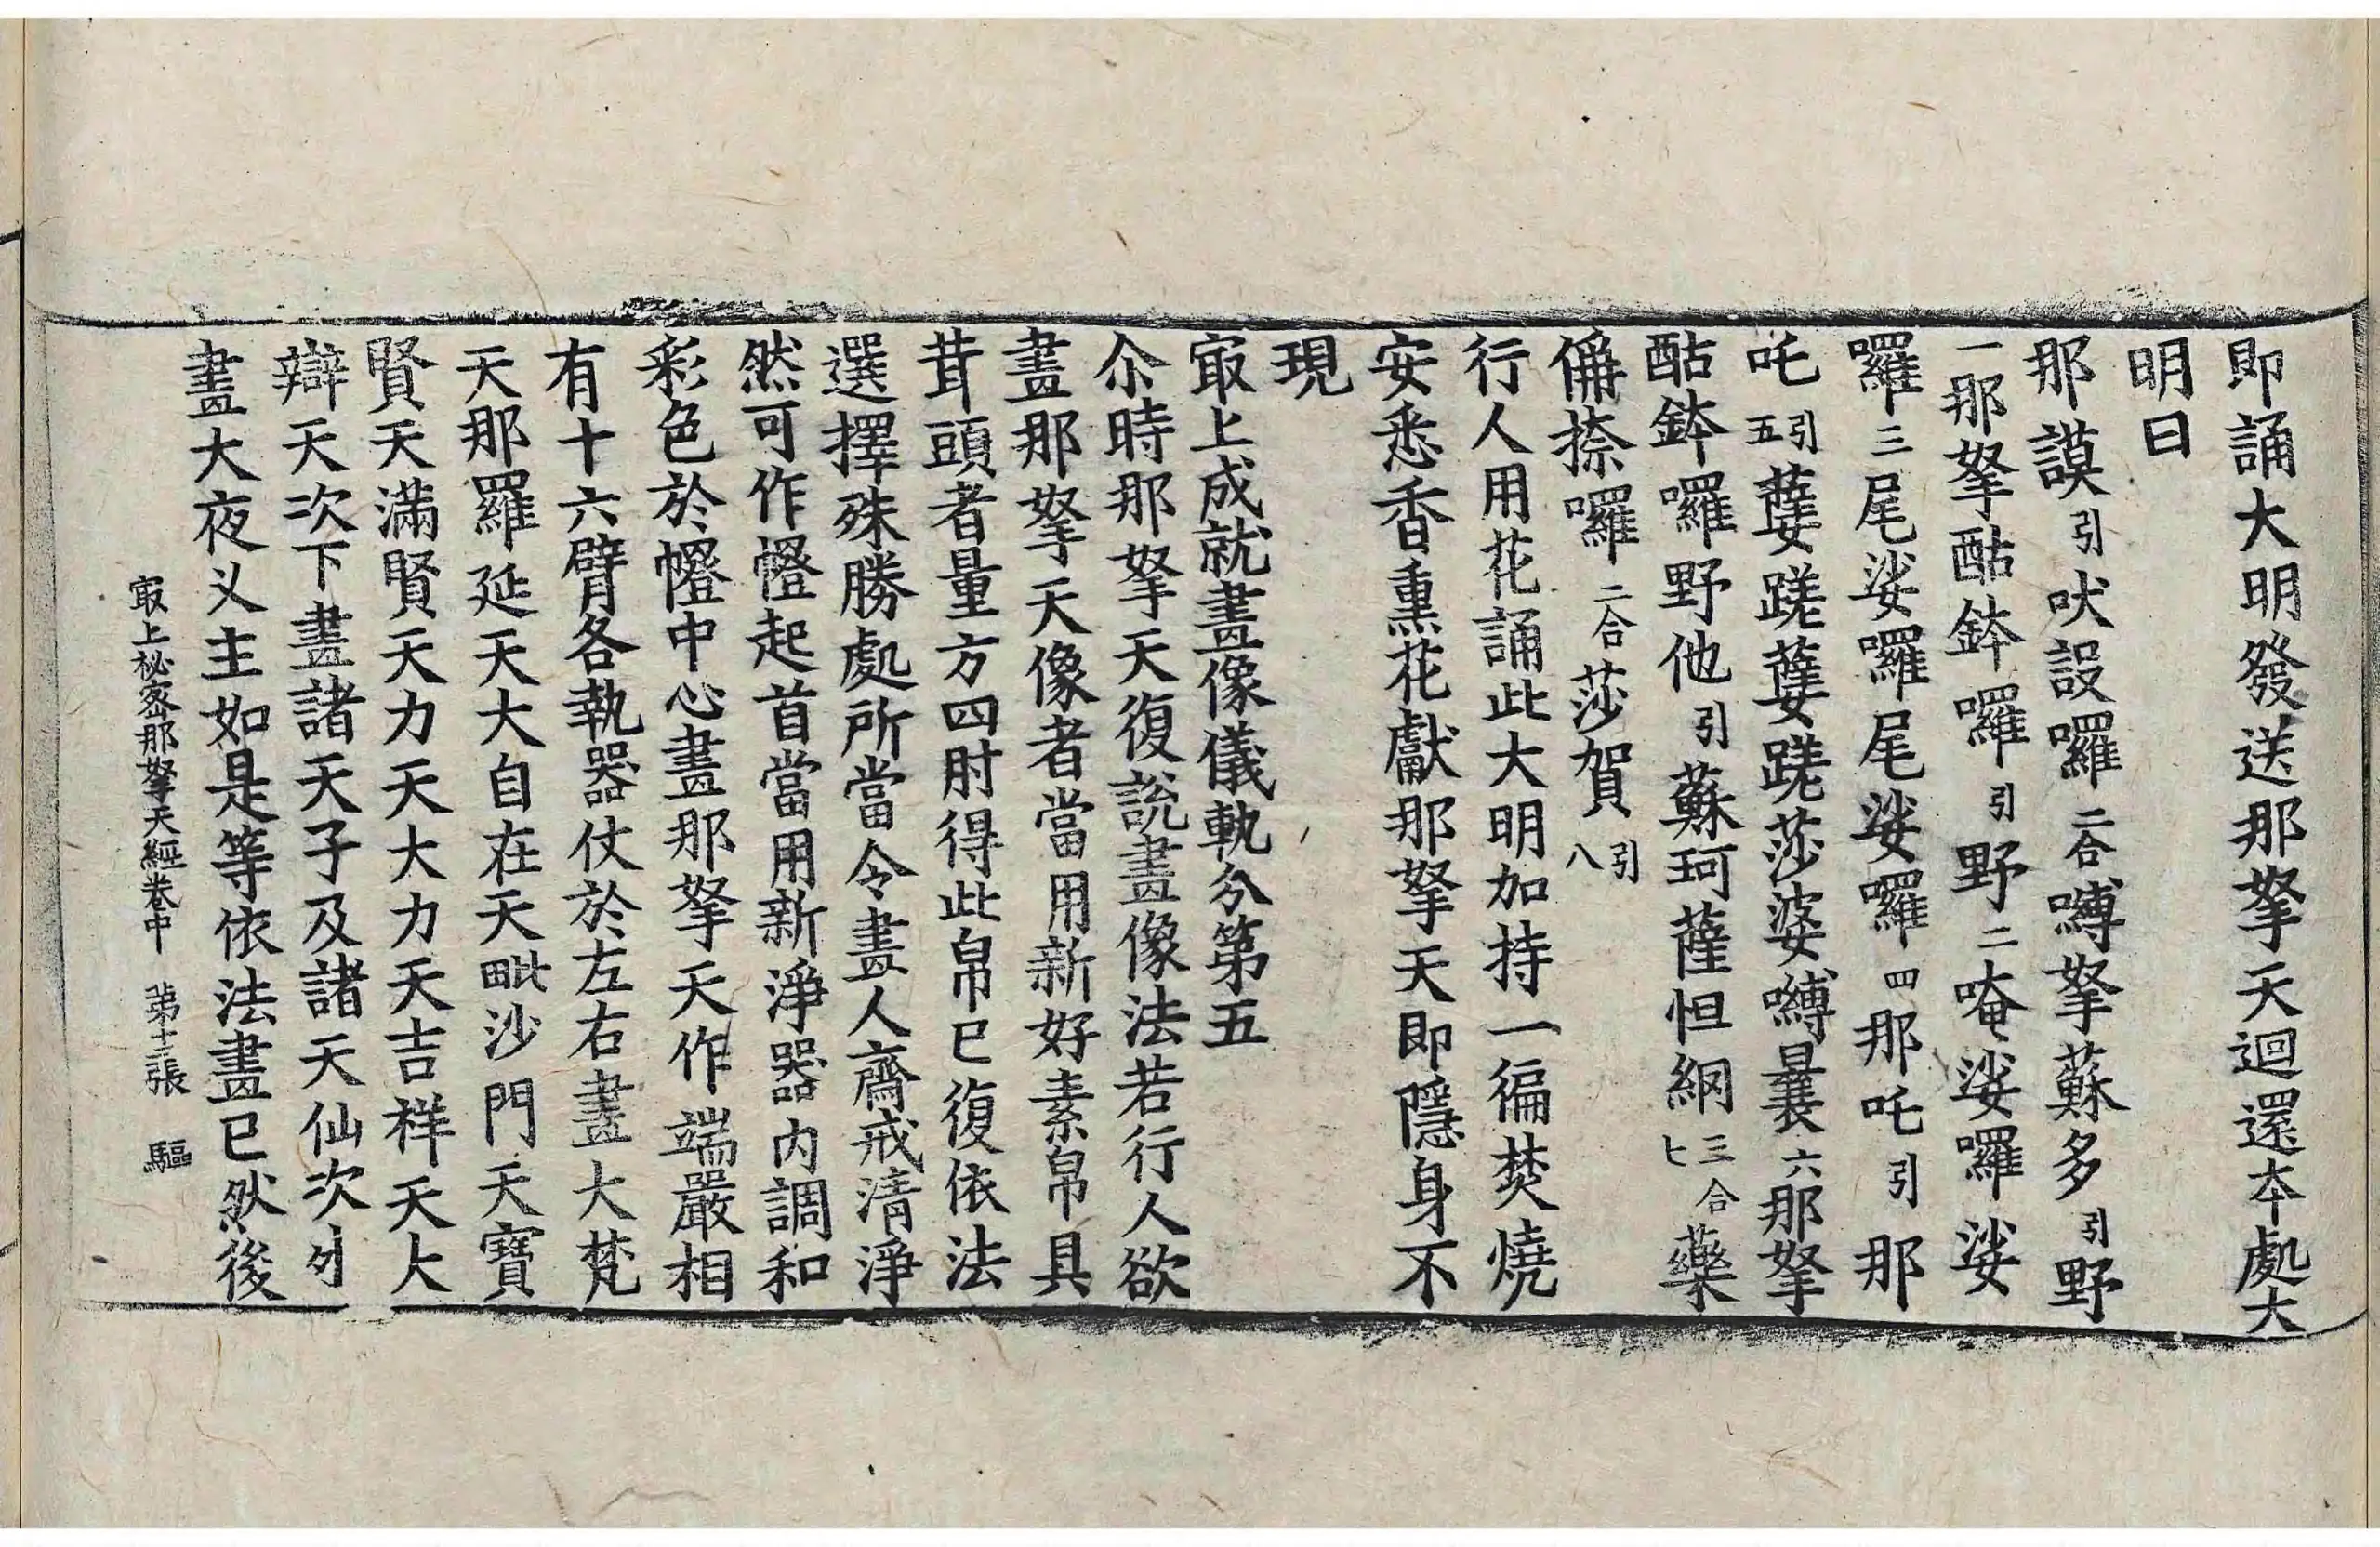 即誦大明發送那拏天迴還本處大
明曰
那謨引吠設囉二合嚩拏蘇多引野
一那拏酤鉢囉引野二唵娑囉娑
囉三尾娑囉尾娑囉四那吒引那
吒引五蹉蹉莎婆嚩曩六那拏
酤鉢囉野他引蘇珂薩怛綱三合七藥
備捺囉二合莎賀引八
行人用花誦此大明加持一徧焚燒
安悉香熏花獻那拏天即隱身不
現
㝡上成就畫像儀軌分第五
尒時那拏天復說畫像法若行人欲
畫那拏天像者當用新好素帛具
茸頭者量方四肘得此帛已復依法
選擇殊勝處所當令畫人齋戒清淨
然可作㡧起首當用新淨器内調和
彩色於㡧中心畫那拏天作端嚴相
有十六臂各執器仗於左右畫大梵
天那羅延天大自在天毗沙門天寶
賢天滿賢天力天大力天吉祥天大
辯天次下畫諸天子及諸天仙次外
畫大夜义主如是等依法畫已然後
㝡上祕密那拏天經卷中 第十三張 驅